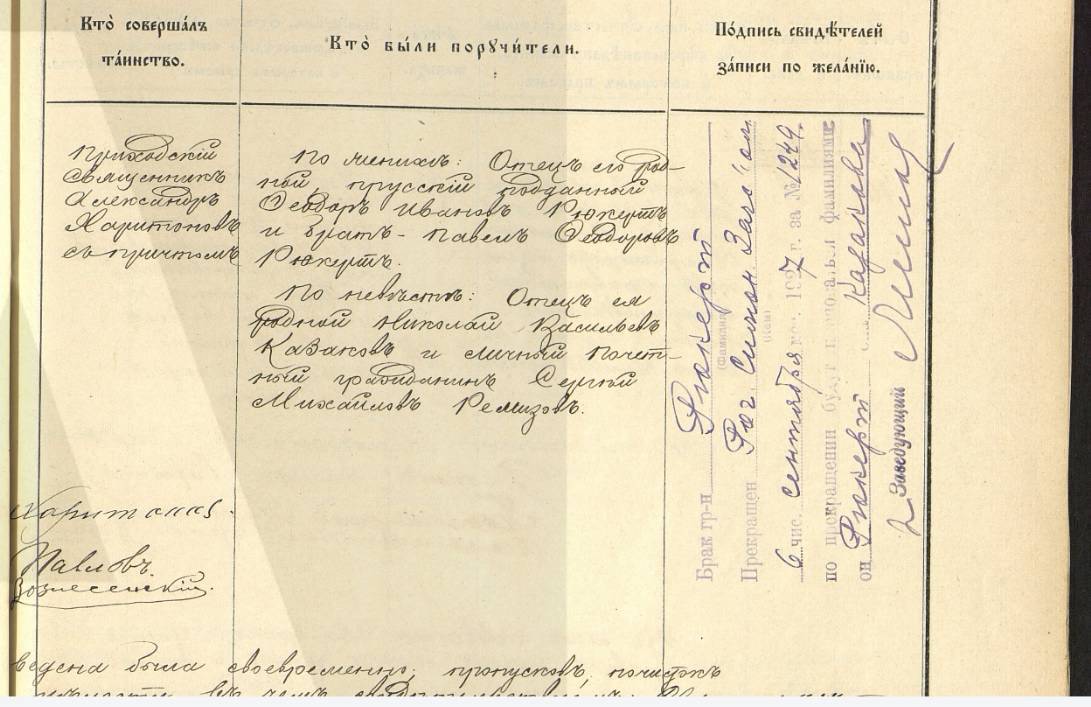 Кто̀ соверша́лъ
та́инство.
Кто̀ бы́ли поручи́тели.
По́дпись свидѣ́телей
за́писи по жела́нїю.
Приходскій
священникъ
Александръ
Харитоновъ
съ причтомъ
По женихѣ: Отецъ его род-
ной, прусскій подданный
Ѳеодоръ Ивановъ Рюкертъ
и братъ - Павелъ Ѳеодоровъ
Рюкертъ.
По невѣстѣ: Отецъ ея
родной Николай Васильевъ
Казаковъ и личный почет-
ный гражданинъ Сергѣй
Михайловъ Ремизовъ.
Брак гр-н Рюкерт
(Фамилия)
Прекращен Заг
(кем)
6 чис. сентября 1927 г. за № 1249.
по прекращении будут фамилиями
он Рюкерт Казакова
Заведующий
Павловъ.
Вознесенскій.
ведена была своевременно; пропусковъ, почистокъ